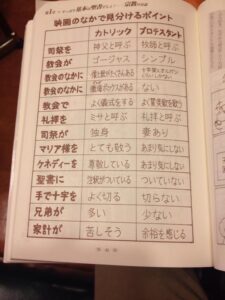 映画のなかで見分けるポイント
カトリック プロテスタント
司祭を 神父と呼ぶ 牧師と呼ぶ
教会が ゴージャス シンプル
教会のなかに 像と歌がたくさんある
教会のなかに 告解ボックスがある ない
教会で よく儀式をする よく賛美歌を歌う
礼拝を ミサと呼ぶ 礼拝と呼ぶ
司祭が 独身 妻あり
マリア様を とても敬う あまり気にしない
ケネディーを 尊敬している あまり気にしない
聖書に 注釈がついている ついていない
手で十字を よく切る 切らない
兄弟が 多い 少ない
家計が 苦しそう 余裕を感じる